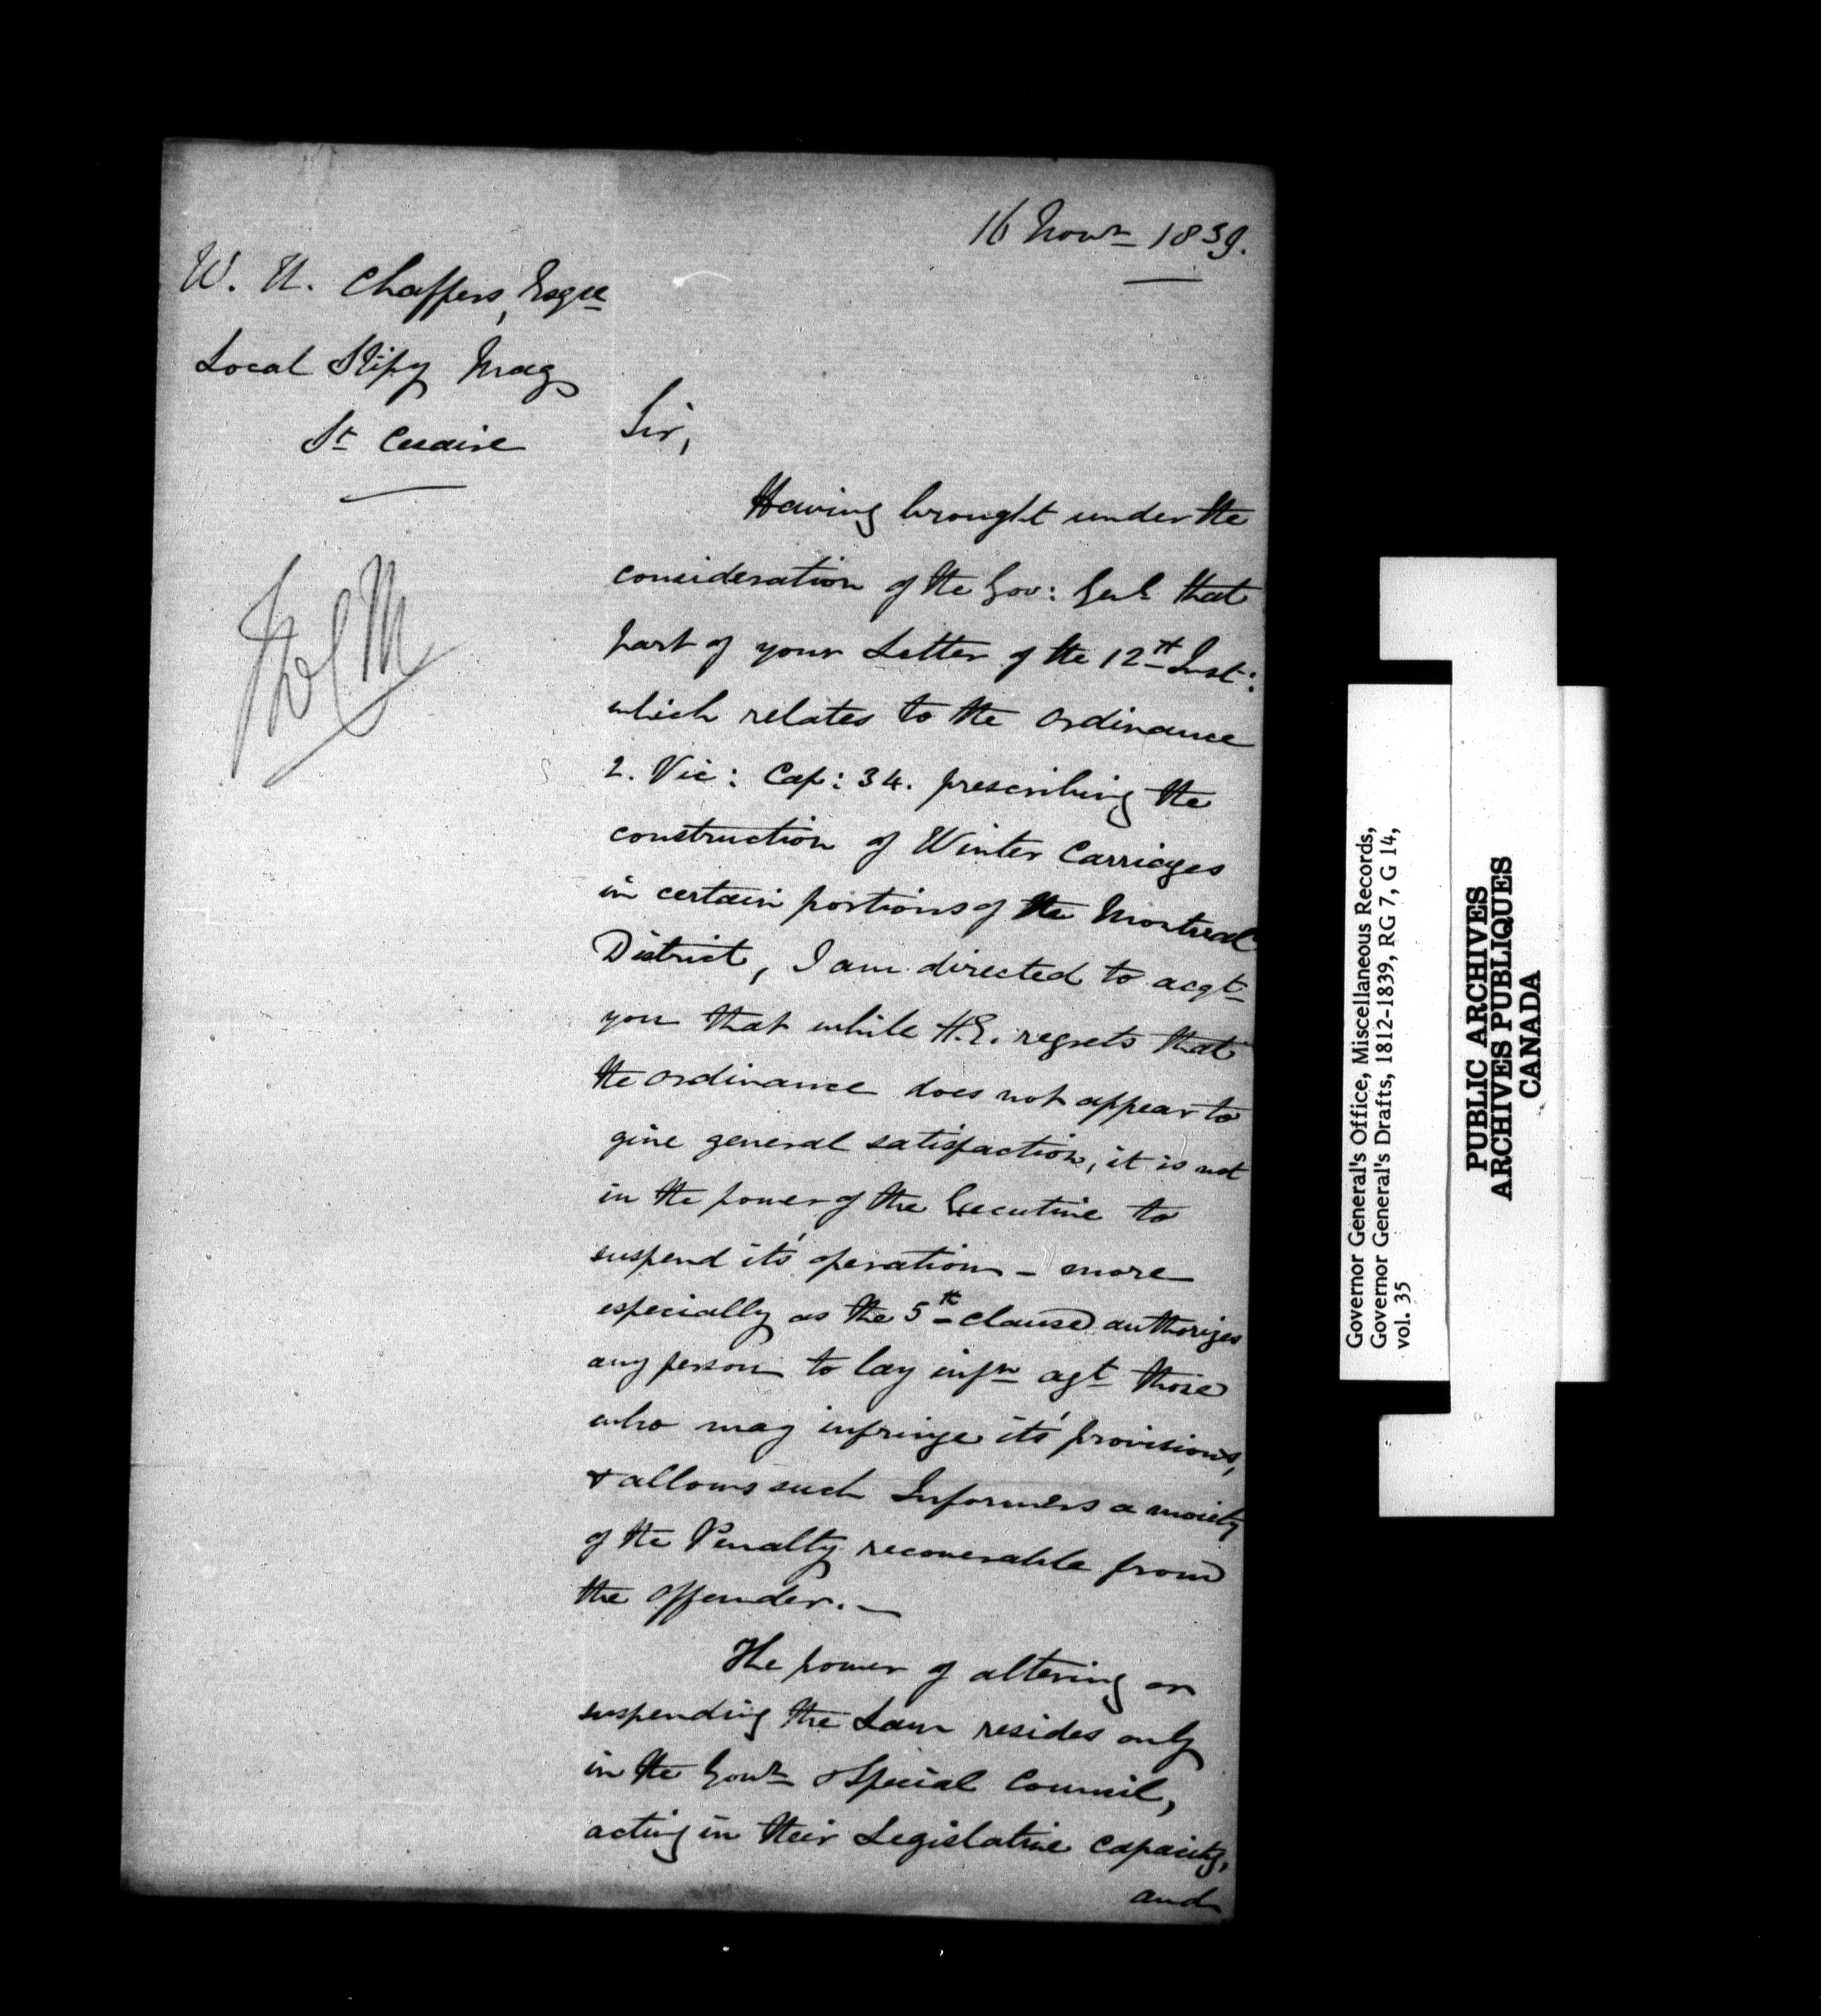 16 Novr 1839.
W. U. Chaffers, Esqre
Local Stipy Mag
St Cesaire
Sir,
Having brought under the
consideration of the Gov: Genl that
part of your Letter of the 12th Inst:
which relates to the Ordinance
2. Vic: Cap: 34. prescribing the
construction of Winter Carriages
in certain portions of the Montreal
District, I am directed to acqt
you that while H.E. regrets that
the Ordinance does not appear to
give general satisfaction, it is not
in the power of the Executive to
suspend it's operation - more
especially as the 5th clause authorizes
any person to lay infn agt those
who may infringe it's provisions,
& allows such Informers a moiety
of the Penalty recoverable from
the offender. —
The power of altering or
suspending the Law resides only
in the Govr & Special Council,
acting in their Legislative capacity,
and
Governor General's Office, Miscellaneous Records,
Governor General's Drafts, 1812-1839, RG 7, G 14,
vol. 35
PUBLIC ARCHIVES
ARCHIVES PUBLIQUES
CANADA